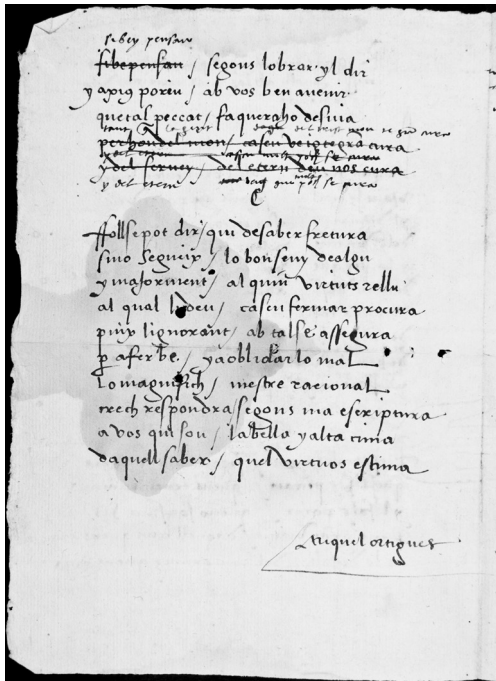 si bey pensau
sibepensau / segons lobrar yl dir
y apiuς poreu / ab vos ben avenir
que tal peccat / fa queraho desuia
per hon del mon / cascu
y del / del etern deu nos cura
y del etern se cura
C
ffoll se pot dir / qui de saber fretura
sino segueix / lo bon seny dealgu
y majorment / al quin virtuts rellu
al qual lideu / cascu fermar procura
puix lignorant / ab tal se assegura
p afer be / ya oblidar lo mal
Lo magnifich / mestre racional
crech respondra / segons ma escriptura
a vos qui sou / la bella y alta cima
daquell saber / quel virtuos estima
Miquel ortigues